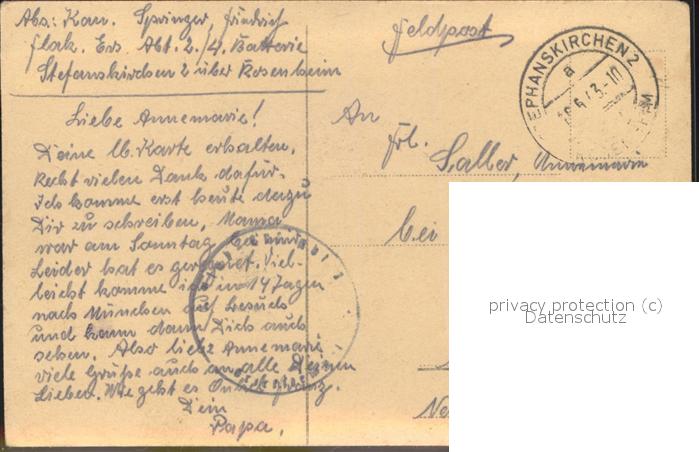 Abs: Kan. Springer, Friedrich
Flak. Ers. Abt. 2./4. Batterie
Stefanskirchen 2 über Rosenheim
Feldpost
STEPHANSKIRCHEN 2
a
Liebe Annemarie!
Deine lb. Karte erhalten,
Recht vielen Dank dafür.
Ich komme erst heute dazu
Dir zu schreiben, Mama
war am Sonntag bei mir
Leider hat es geregnet. Viel-
leicht komme ich in 14 Tagen
nach München auf Besuch
und kann dann Dich auch
sehen. Also liebe Annemarie
viele Grüße auch an alle Deinen
Lieben. Wie geht es Onkel Franz.
Dein
Papa,
An
Frl.
Saller, Annemarie
bei
privacy protection (c)
Datenschutz